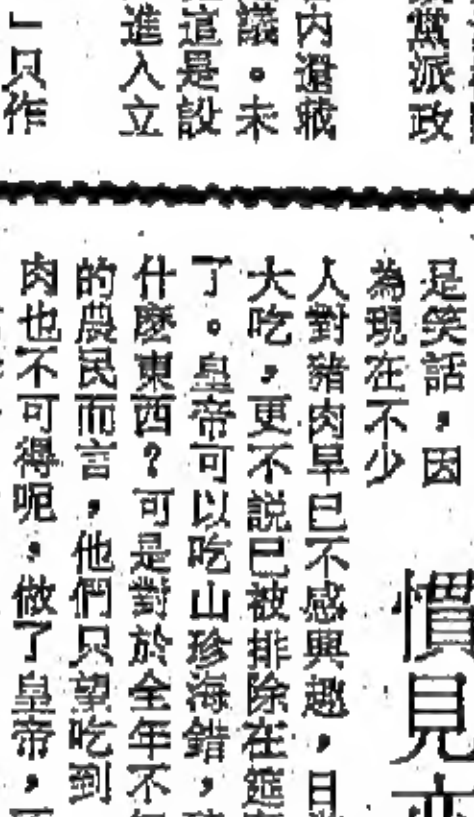 黨派政
內還載
議。未
這是設
進入立
」只作
慣見
是笑話，因
為現在不少
人對豬肉早已不感興趣，日
大吃，更不説已被排除在筵
了。皇帝可以吃山珍海錯，
什麼東西？可是對於全年不
的農民而言，他們只望吃到
肉也不可得呢，做了皇帝，